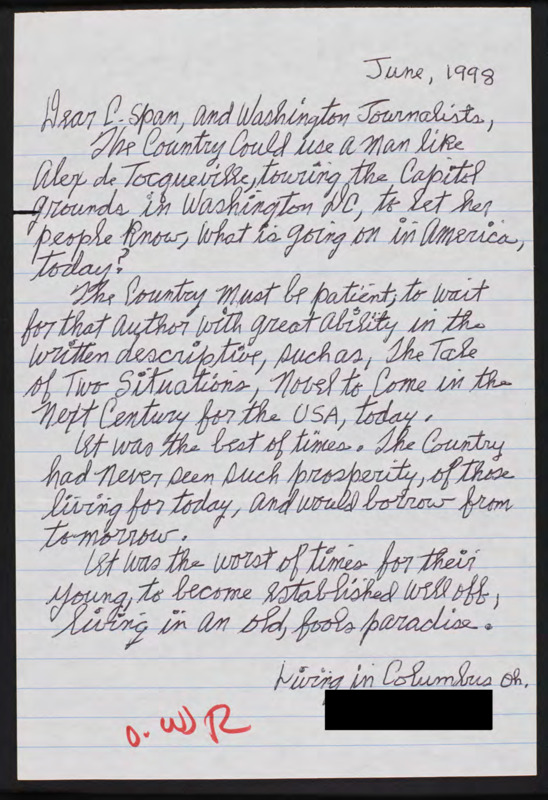 June, 1998
Dear C-Span, and Washington Journalists,
The Country Could use a man like
Alex de Tocqueville, touring the Capitol
grounds in Washington DC, to let her
people know, what is going on in America,
today?
The Country must be patient, to wait
for that author with great ability in the
written descriptive, such as, The Tale
of Two Situations, Novel to Come in the
Next Century for the USA, today.
It was the best of times. The Country
had never seen such prosperity, of those
living for today, and would borrow from
tomorrow.
It was the worst of times for their
young, to become established well off,
living in an old, fools paradise.
Living in Columbus Oh.
O. WR